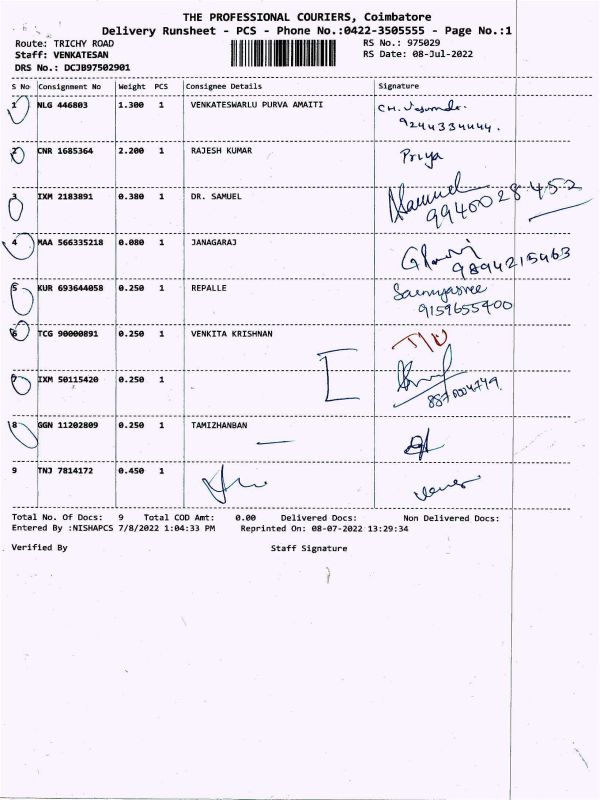 THE PROFESSIONAL COURIERS, Coimbatore
Delivery Runsheet - PCS - Phone No.:0422-3505555 - Page No.:1
Route: TRICHY ROAD RS No.: 975029
Staff: VENKATESAN RS Date: 08-Jul-2022
DRS No.: DCJB97502901
S No Consignment No Weight PCS Consignee Details Signature
1 NLG 446803 1.300 1 VENKATESWARLU PURVA AMAITI CH.
9244334444.
2 CNR 1685364 2.200 1 RAJESH KUMAR Priya
3 IXM 2183891 0.380 1 DR. SAMUEL Samuel
9940028452
4 MAA 566335218 0.080 1 JANAGARAJ
9894215463
5 KUR 693644058 0.250 1 REPALLE
9159655400
6 TCG 90000891 0.250 1 VENKITA KRISHNAN
7 IXM 50115420 0.250 1
8 GGN 11202809 0.250 1 TAMIZHANBAN
9 TNJ 7814172 0.450 1
Total No. Of Docs: 9 Total COD Amt: 0.00 Delivered Docs: Non Delivered Docs:
Entered By :NISHAPCS 7/8/2022 1:04:33 PM Reprinted On: 08-07-2022 13:29:34
Verified By Staff Signature